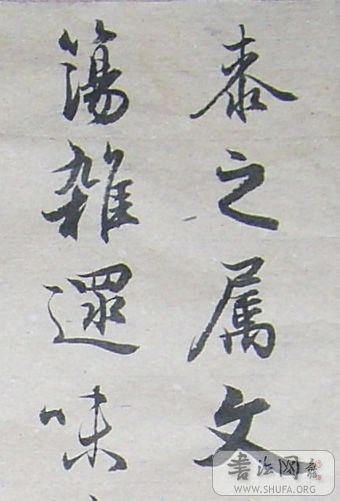 泰之属文
簜雜遝味
書法网
WWW.SHUFA.ORG